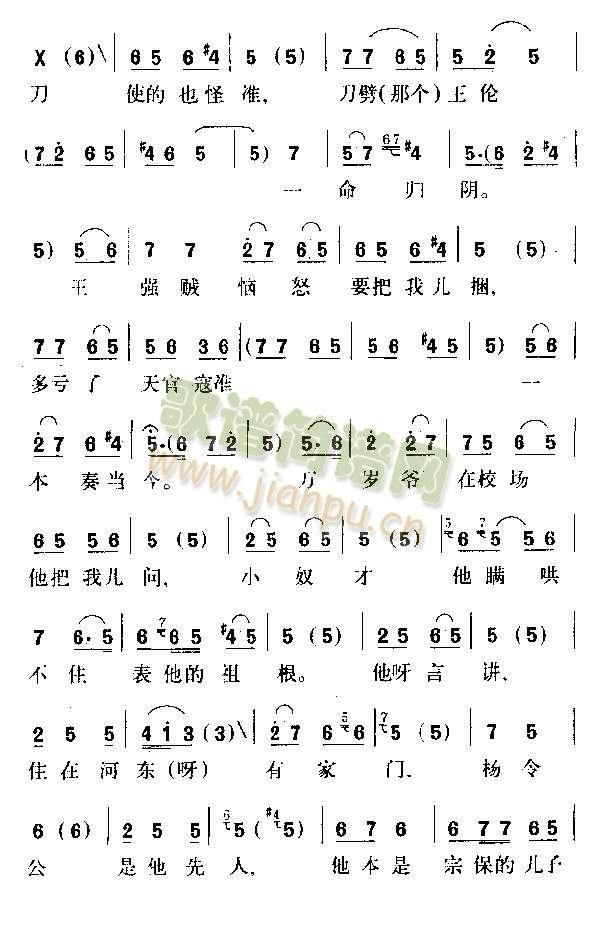 X (6)\ | 65 6#4 | 5 (5) | 77 65 | 5 2 5
刀 使的也怪准, 刀劈(那个)王伦
(72 65 | #46 5 | 5) 7 | 57 67 #4 | 5·(6 2#4
一命归阴。
5) 56 | 7 7 | 27 65 | 65 6#4 | 5 (5)
王强贼恼怒要把我儿捆,
77 65 | 56 36 | (77 65 | 56 #45 | 5) 56
多亏了天官寇准一
27 6#4 | 5·(6 72 | 5) 5·6 | 2 27 | 75 65
本奏当今。万岁爷在校场
65 56 | 5 (5) | 25 65 | 5 (5) | 5 6 7 5 56
他把我儿问, 小奴才他瞒哄
7 6·5 | 6 7 65 #45 | 5 (5) | 25 65
不住表他的祖根。他呀言讲,
2 5 5 | 413 (3)\ | 27 6 5 6 | 7 5 (5) | 7 5
住在河东(呀)有家门, 杨令
6 (6) | 25 5 | 6 5 (#4 5) | 67 6 | 677 65
公是他先人, 他本是宗保的儿子
歌谱简谱网
www.jianpu.cn